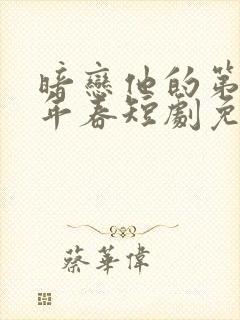 暗戀他的第
年春短劇免
蔡華偉